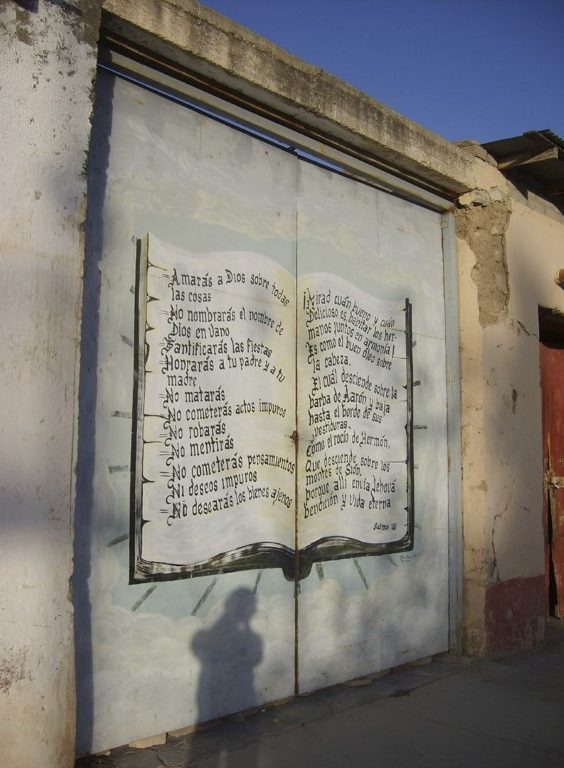 Amarás a Dios sobre todas
las cosas
No nombrarás el nombre de
Dios en vano
Santificarás las fiestas
Honrarás a tu padre y a tu
madre
No matarás
No cometerás actos impuros
No robarás
No mentirás
No cometerás pensamientos
Ni deseos impuros
No desearás los bienes ajenos
¡Mirad cuán bueno y cuán
Delicioso es, habitar los her-
manos juntos en armonía!
Es como el buen óleo sobre
la cabeza,
El cuál desciende sobre la
barba de Aarón y baja
hasta el borde de sus
vestiduras,
Como el rocío de Hermón,
Que desciende sobre los
montes de Sión,
porque allí envía Jehová
bendición y vida eterna
Salmo